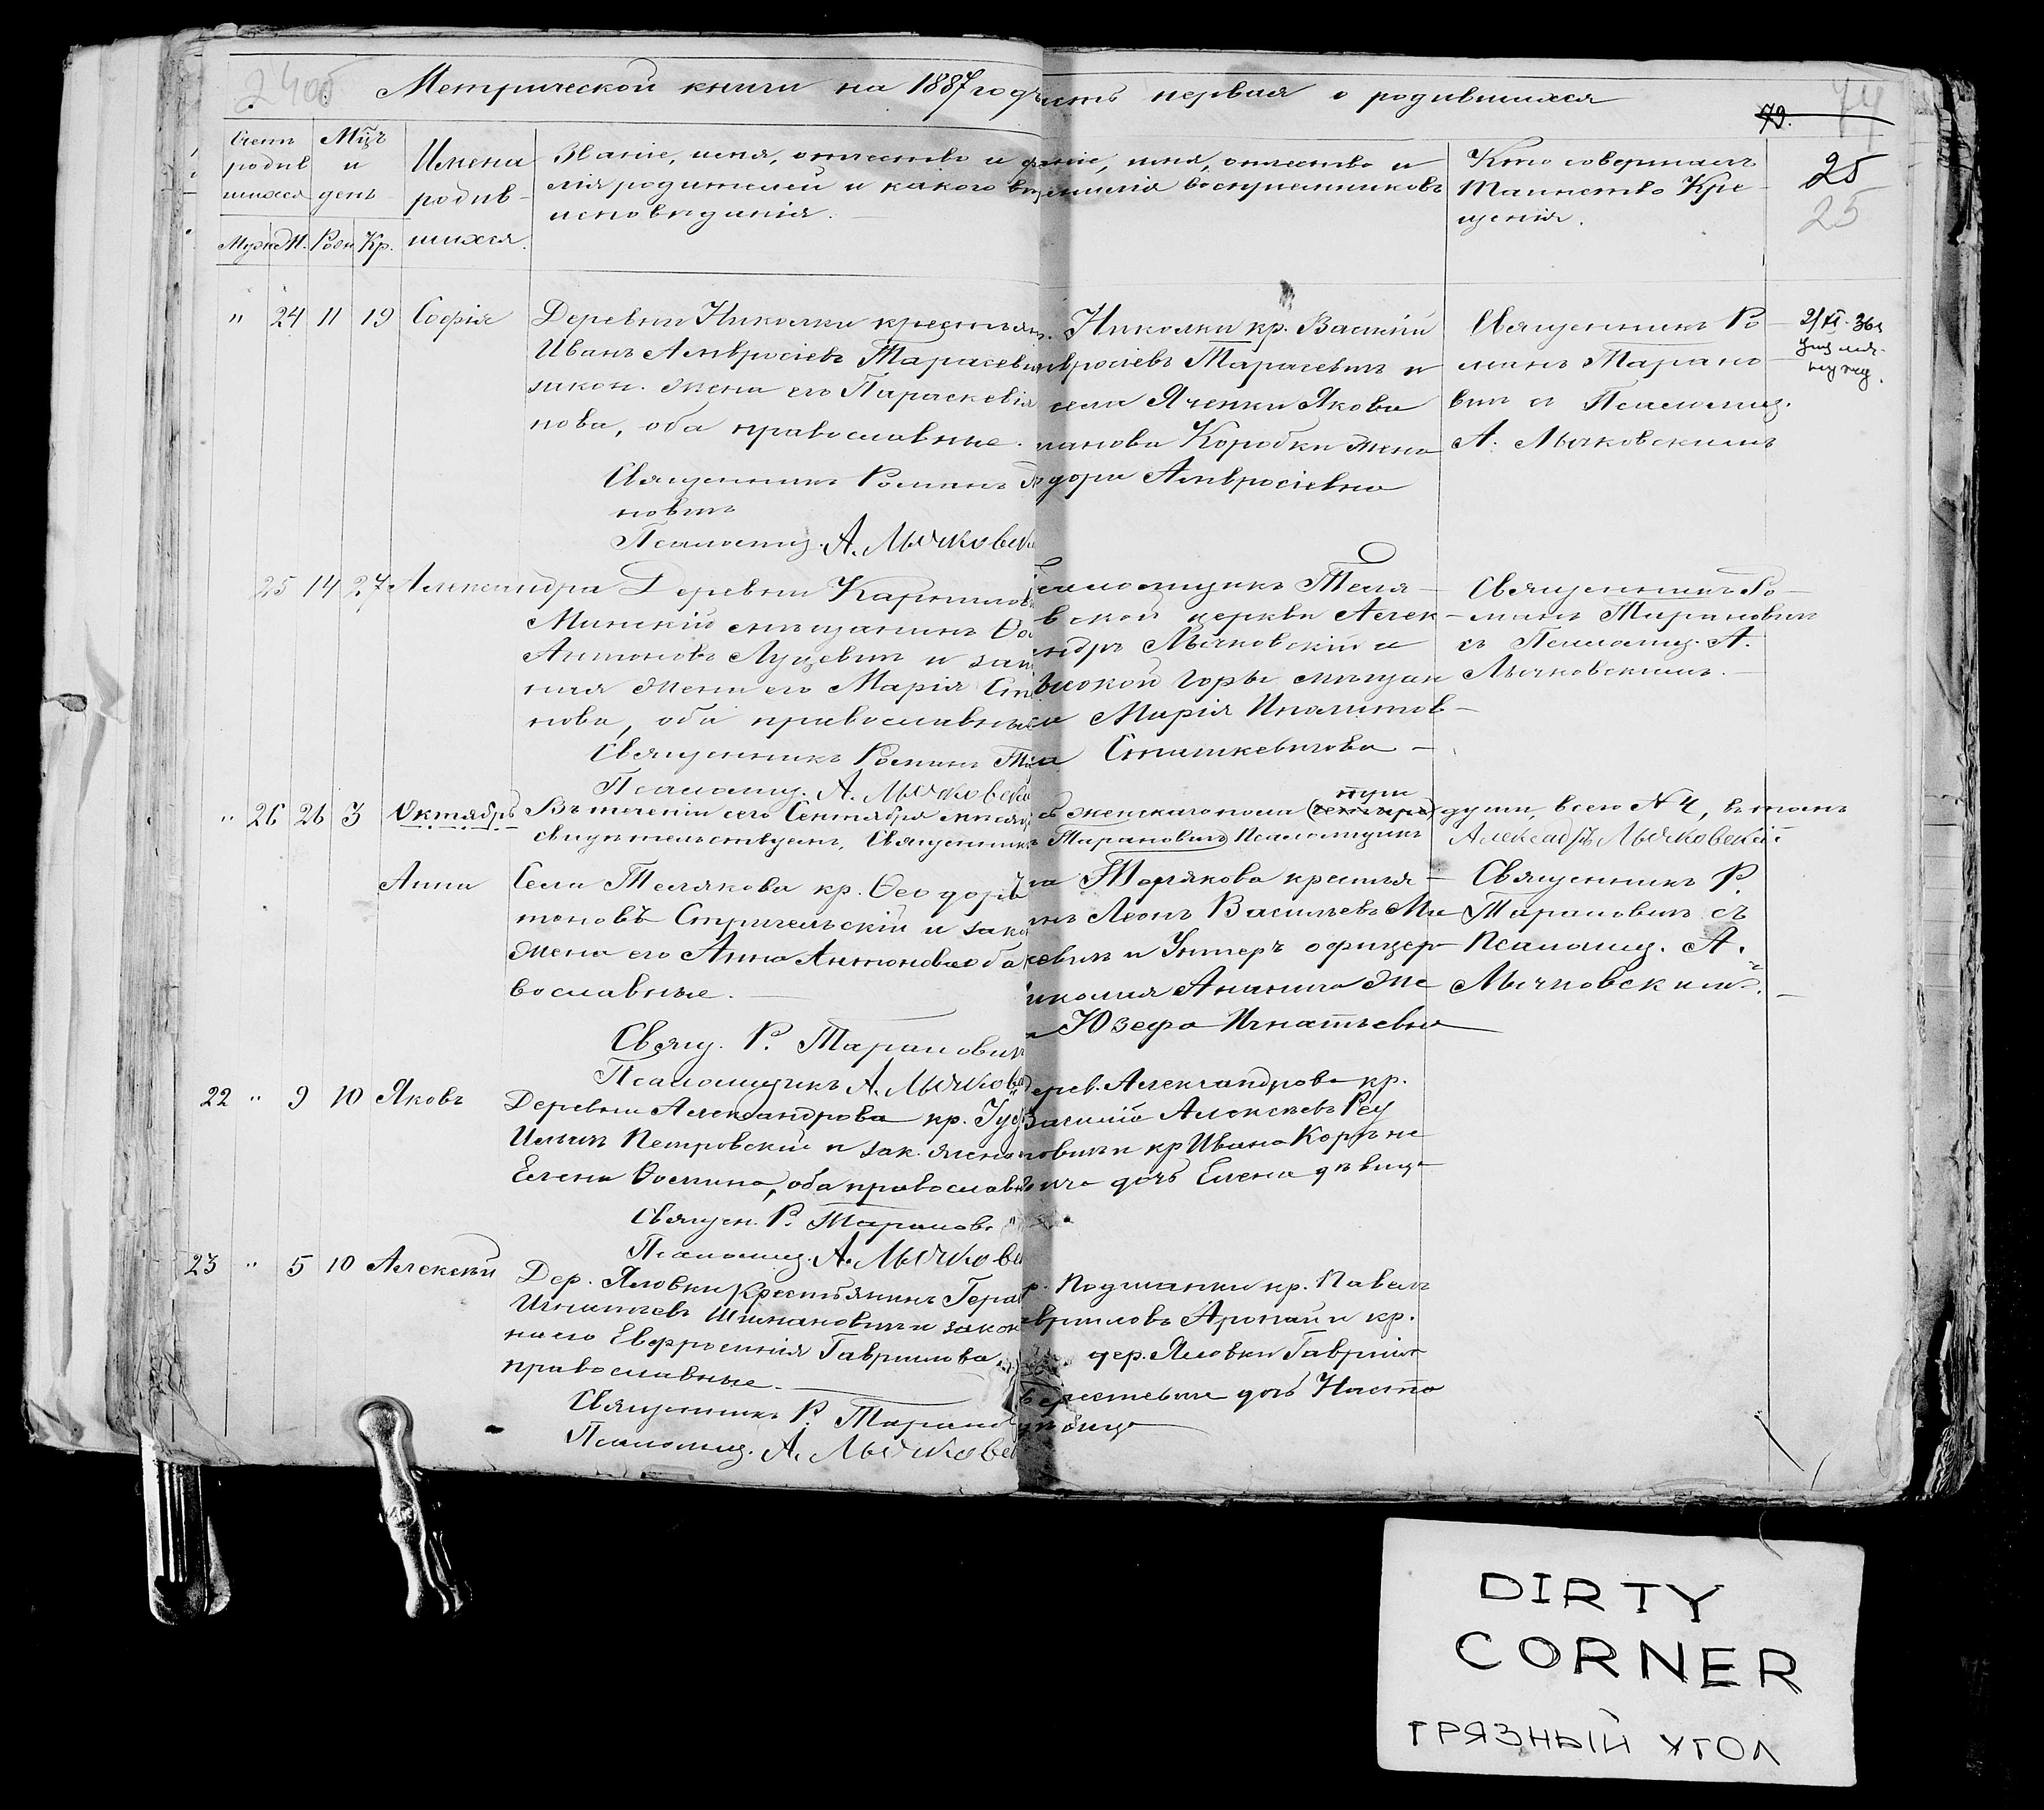 Метрической книги на 1887 годъ
сть первая о родившихся
79.
25
25
Счетъ родив шихся
Мцъ и день
Муж Ж. Рож Кр.
Имена родив- шихся.
Званіе, имя, отчество и фа
лія родителей и какого вѣ
исповѣданія.
аніе, имя, отчество и
милія воспріемниковъ
Кто совершалъ
Таинство Кре-
щенія.
" 24 11 19 Софія
Деревни Николки крестьян
Иванъ Амвросіевъ Тарасеви
закон. жена его Параскевія
нова, оба православные.
Священникъ Романъ
новичъ
Псаломщ. А. Лычковск
Николки кр. Василій
мвросіевъ Тарасевичъ и
села Яченки Якова
манова Коробки жена
дора Амвросіевна
Священникъ Ро-
манъ Тарано-
вичъ съ Псаломщ.
А. Лычковскимъ
25 14 27 Александра
Деревни
Минскій мѣщанинъ
Антоновъ Луцевичъ и зак
ная жена его Марія
нова, оба православные
Священникъ Романъ Та
Псаломщ. А. Лычковск
саломщикъ Теля-
вской церкви Алек-
ндръ Лычковскій и
ысокой Горы мѣщан
Марія Ипалитов-
а Сташкевичова
Священникъ Ро-
манъ Тарановичъ
съ Псаломщ. А.
Лычковскимъ.
" 26 26 3 Октябрь
Въ теченіи сего Сентября мѣсяца
свидѣтельствуемъ, Священникъ
женскаго пола (четыре) души, всего N 4, въ томъ
Тарановичъ Псаломщикъ Александръ Лычковскій
Анна
Села Телякова кр. Ѳеодоръ
тоновъ Стригельскій и зако
жена его Анна Антонова оба
вославные.
Свящ. Р. Тарановичъ
Псаломщикъ А. Лычков
ла Телякова крестья-
нъ Леонъ Васильевъ Ма
евичъ и Унтеръ офицер
иколая Ананича же
а Юзефа Игнатьевна
Священникъ Р.
Тарановичъ съ
Псаломщ. А.
Лычковским.
22 " 9 10 Яковъ
Деревни Александрова кр.
Ильинъ Петровскій и зак. жена
Елена Ѳомина, оба православн
Священ. Р. Таранов
Псаломщ. А. Лычков
ерев. Александрова кр.
Василій Алексѣевъ Реу
новичъ и кр Ивана Корѣне
ича дочь Елена дѣвица
23 " 5 10 Алексѣй
Дер. Яловки Крестьянинъ Гера
Игнатьевъ Шимановичъ и закон
на его Евфросинія Гаврилова
православные.
Священникъ Р. Таранов
Псаломщ. А. Лычковс
р. Подшанки кр. Павелъ
вриловъ Аропай и кр.
дер. Яловки Гавріила
дочь Наста
дѣвица
DIRTY
CORNER
ГРЯЗНЫЙ УГОЛ